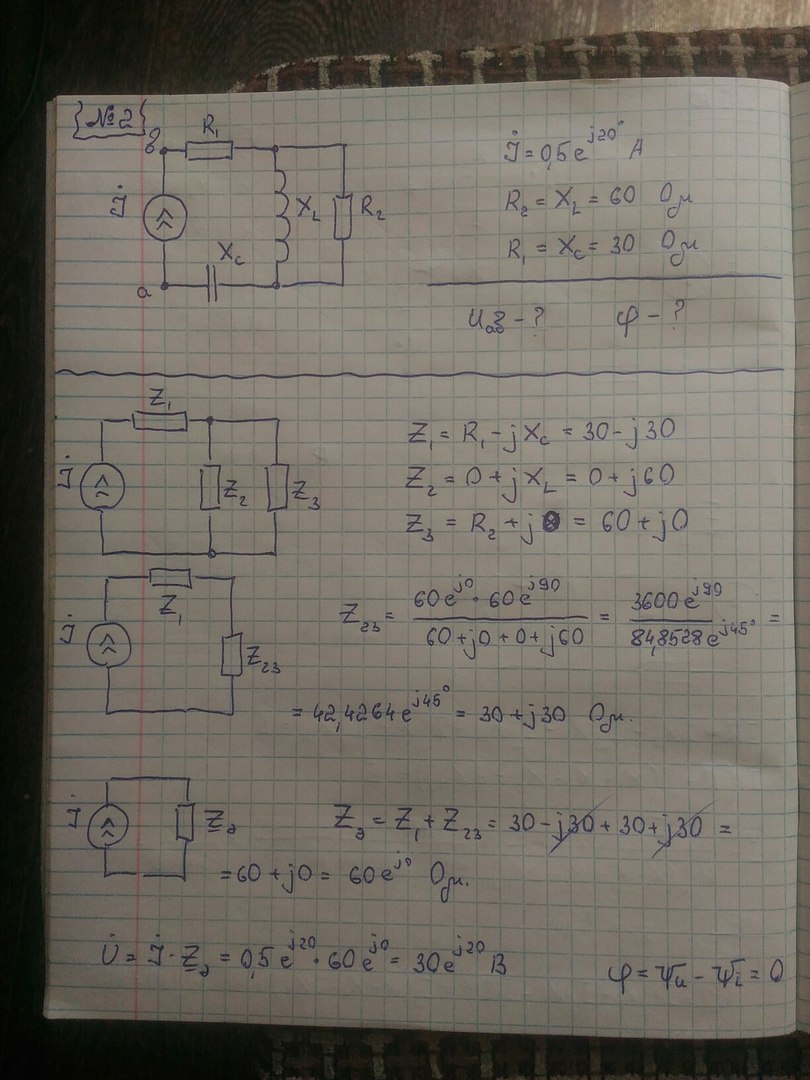 №2
в R₁
J̇ X_L R₂
X_C
a
J̇ = 0,5e^{j20°} A
R₂ = X_L = 60 Ом
R₁ = X_C = 30 Ом
U_ab - ? φ - ?
Z₁
J̇ Z₂ Z₃
Z₁ = R₁ - jX_C = 30 - j30
Z₂ = 0 + jX_L = 0 + j60
Z₃ = R₂ + j0 = 60 + j0
Z₁
J̇ Z₂₃
Z₂₃ = \frac{60e^{j0} · 60e^{j90}}{60 + j0 + 0 + j60} = \frac{3600e^{j90}}{84,8528e^{j45°}} =
= 42,4264e^{j45°} = 30 + j30 Ом.
J̇ Z_э
Z_э = Z₁ + Z₂₃ = 30 - j30 + 30 + j30 =
= 60 + j0 = 60e^{j0} Ом.
U̇ = J̇ · Z_э = 0,5e^{j20} · 60e^{j0} = 30e^{j20} В
φ = ψ_u - ψ_i = 0